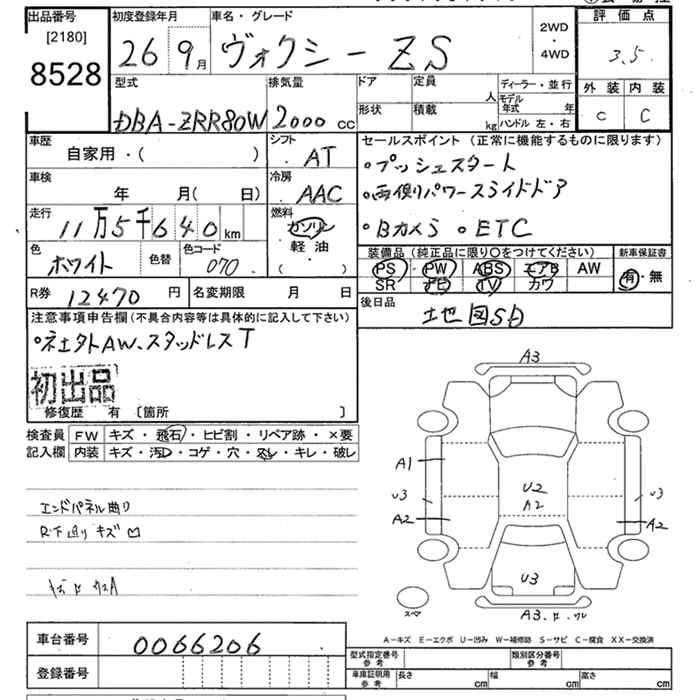 出品番号
[2180]
8528
初度登録年月
26 9月
車名・グレード
ヴォクシー ZS
2WD
・
4WD
評価点
3.5
外装 内装
C C
型式
DBA-ZRR80W
排気量
2000cc
ドア
定員
人
形状
積載
kg
ディーラー・並行
モデル年式 年
ハンドル 左・右
車歴
自家用・( )
シフト
AT
車検
年 月( 日)
冷房
AAC
走行
11万5千640km
燃料
ガソリン
軽油
( )
色
ホワイト
色替
色コード
070
セールスポイント(正常に機能するものに限ります)
・プッシュスタート
・両側パワースライドドア
・Bカメラ ・ETC
装備品(純正品に限り〇をつけてください)
PS PW ABS エアB AW
SR ナビ TV カワ
新車保証書
有・無
R券 12470円
名変期限 月 日
後日品
地図SD
注意事項申告欄(不具合内容等は具体的に記入して下さい)
・社外AW、スタッドレスT
初出品
修復歴 有 [箇所 ]
検査員記入欄
FW キズ・飛石・ヒビ割・リペア跡・×要
内装 キズ・汚レ・コゲ・穴・スレ・キレ・破レ
エンドパネル曲り
R下廻りキズ凹
A3
A1
U3
A2
U2
A2
U3
A2
U3
A3
スペア
A-キズ E-エクボ U-凹み W-補修跡 S-サビ C-腐食 XX-交換済
車台番号
0066206
登録番号
型式指定番号 参考
類別区分番号 参考
車庫証明用 参考
長さ cm
幅 cm
高さ cm